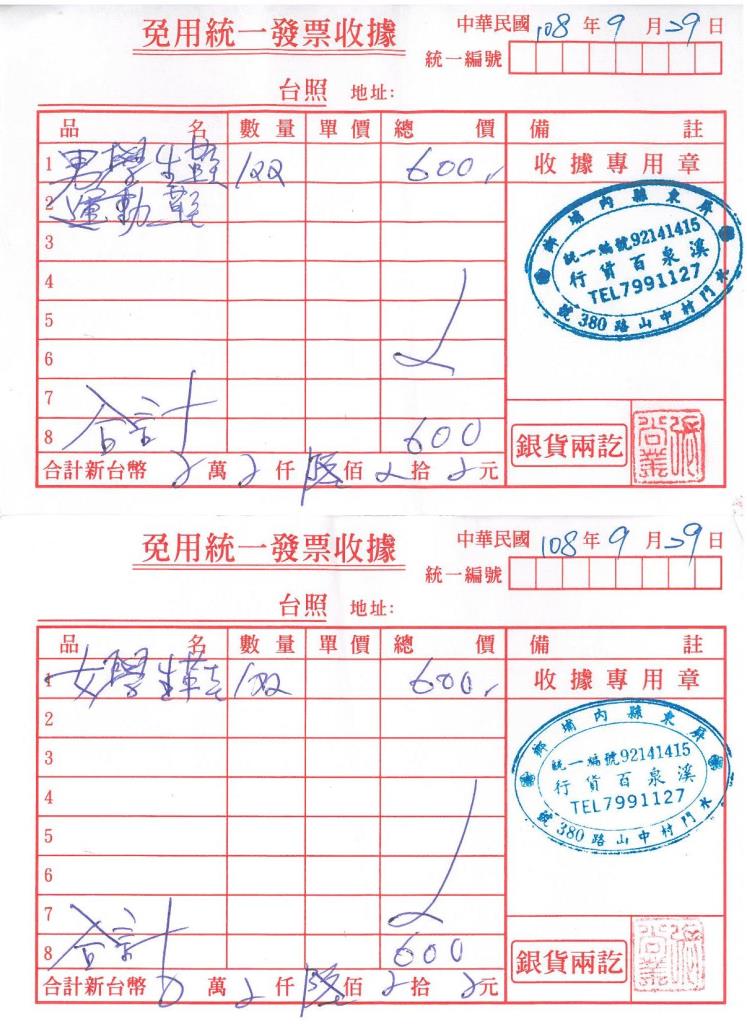 免用統一發票收據
中華民國 108 年 9 月 29 日
統一編號
台照 地址:
品名 數量 單價 總價 備註
1 男學生鞋 1双 600 收據專用章
2 運動鞋
3
4
5
6
7
8 合計 600
屏東縣內埔鄉
統一編號92141415
溪泉百貨行
TEL7991127
水門村中山路380號
銀貨兩訖
合計新台幣 萬 仟 陸佰 拾 元
免用統一發票收據
中華民國 108 年 9 月 29 日
統一編號
台照 地址:
品名 數量 單價 總價 備註
1 女學生 1双 600 收據專用章
2
3
4
5
6
7
8 合計 600
屏東縣內埔鄉
統一編號92141415
溪泉百貨行
TEL7991127
水門村中山路380號
銀貨兩訖
合計新台幣 萬 仟 陸佰 拾 元